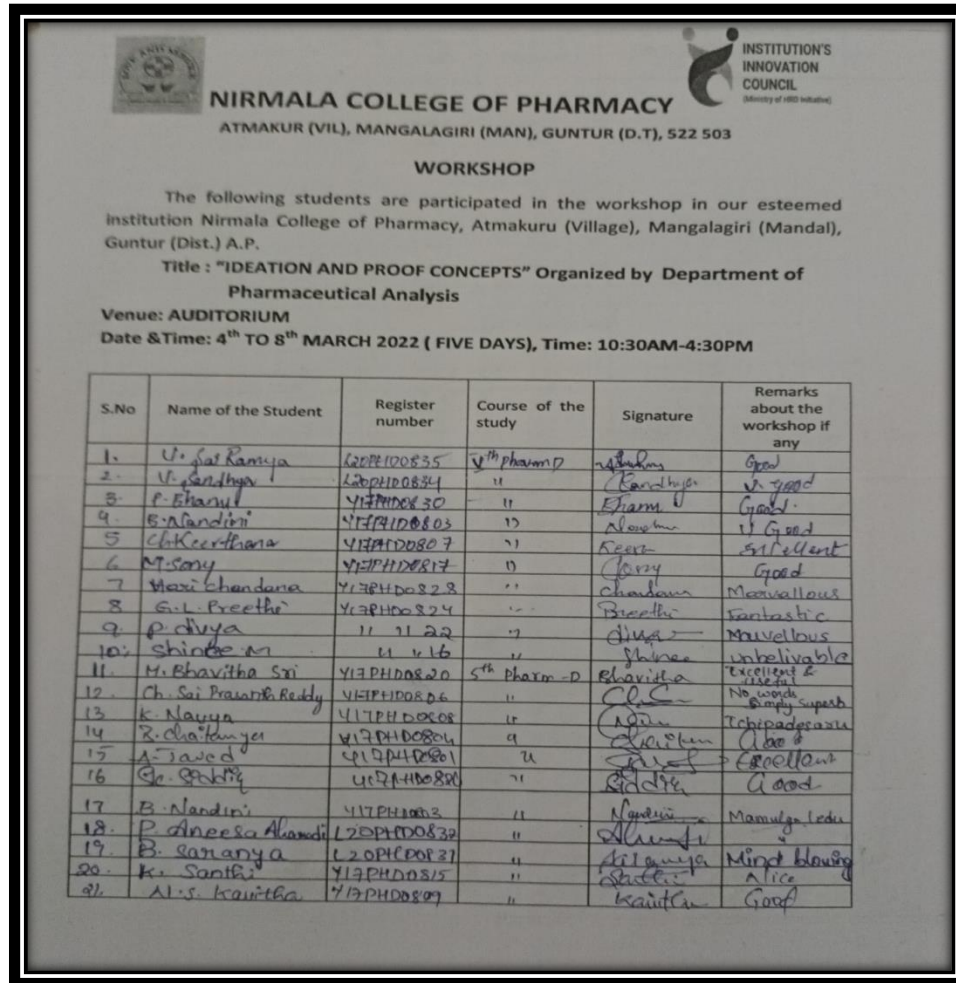 INSTITUTION'S
INNOVATION
COUNCIL
(Ministry of HRD Initiative)
NIRMALA COLLEGE OF PHARMACY
ATMAKUR (VIL), MANGALAGIRI (MAN), GUNTUR (D.T), 522 503
WORKSHOP
The following students are participated in the workshop in our esteemed
institution Nirmala College of Pharmacy, Atmakuru (Village), Mangalagiri (Mandal),
Guntur (Dist.) A.P.
Title : "IDEATION AND PROOF CONCEPTS" Organized by Department of
Pharmaceutical Analysis
Venue: AUDITORIUM
Date &Time: 4th TO 8th MARCH 2022 ( FIVE DAYS), Time: 10:30AM-4:30PM
S.No Name of the Student Register number Course of the study Signature Remarks about the workshop if any
1. V. Sai Ramya L20PHD0835 Vth Pharm D Good
2. V. Sandhya L20PHD0834 " Sandhya V. good
3. P. Bhanu Y17PHD0830 " Bhanu Good.
4. B. Nandini Y17PHD0803 " Good
5 Ch. Keerthana Y17PHD0807 " Keer Excellent
6 M. Sony Y17PHD0817 " Sony Good
7 Hari chandana Y17PHD0828 " Chandana Marvallous
8 G. L. Preethi Y17PHD0824 " Preethi Fantastic
9. P. divya " " 22 " divya Mauvellous
10. Shinee M " " 16 " Shinee unbelivable
11. M. Bhavitha Sri Y17PHD0820 5th Pharm-D Bhavitha Excellent & useful
12. Ch. Sai Prasanth Reddy Y17PHD0806 " No words Simply superb
13 K. Navya Y17PHD0808 "
14 Chaitanya Y17PHD0804 "
15 A. Javed Y17PHD0801 " Excellent
16 Sk. Siddiq " Siddiq Good
17 B. Nandini " Mamulga Ledu
18. P. Aneesa L20PHD0832 "
19. B. Saranya L20PHD0831 " Mind blowing
20. K. Santhi Y17PHD0815 "
21. N. S. Kavitha Y17PHD0809 " Good